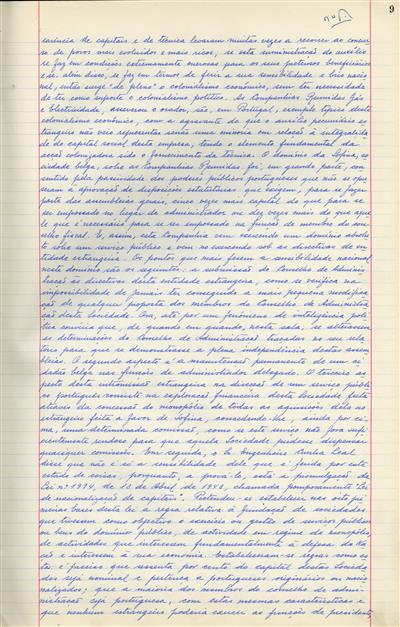 9
carência de capitais e de técnica levaram muitas vezes a recorrer ao concur-
so de povos mais evoluidos e mais ricos; se esta suministração do auxílio
se faz em condições extremamente onerosas para os seus pretensos beneficiários
e se, além disso, se faz em termos de ferir a sua sensibilidade e brio nacio-
nal, então surge "de pleno" o colonialismo económico, sem ter necessidade
de ter como suporte o colonialismo político. As Companhias Reunidas Gás
e Electricidade, assevera o orador, são, em Portugal, exemplo típico deste
colonialismo económico, com a agravante de que o auxílio pecuniário es-
trangeiro não veio representar senão uma minoria em relação à integralida-
de do capital social desta empresa, tendo o elemento fundamental da
acção colonizadora sido o fornecimento da técnica. O domínio da Sofina, so-
ciedade belga, sobre as Companhias Reunidas foi, em grande parte, con-
sentido pela passividade dos poderes públicos portugueses que não se opu-
seram à aprovação de disposições estatutárias que exigem, para se fazer
parte das assembleias gerais, cinco vezes mais capital do que para se
ser empossado no lugar de administrador ou dez vezes mais do que aque-
le que é necessário para se ser empossado na função de membro do con-
selho fiscal. E, assim, esta Companhia vem exercendo um domínio absolu-
to sobre um serviço público e vem-no exercendo sob as directivas de en-
tidade estrangeira. Os pontos que mais ferem a sensibilidade nacional
neste domínio são os seguintes: a submissão do Conselho de Adminis-
tração às directivas desta entidade estrangeira, como se verifica na
impossibilidade de jamais ter conseguido a mais pequena modifica-
ção de qualquer proposta dos membros do Conselho de Administra-
ção desta Sociedade. Ora, até por um fenómeno de inteligência polí-
tica conviria que, de quando em quando, nesta sala, se alterassem
as determinações do Conselho de Administração traçadas no seu rela-
tório para que se demonstrasse a plena independência destas assem-
bleias. O segundo aspecto é a manutenção permanente de um ci-
dadão belga nas funções de administrador delegado. O terceiro as-
pecto desta intromissão estrangeira na direcção de um serviço públi-
co português consiste na exploração financeira desta Sociedade feita
através da concessão do monopólio de todas as aquisições dela no
estrangeiro feita a favor da Sofina, concedendo-lhe, ainda por ci-
ma, uma determinada comissão, como se este serviço não fora sufi-
cientemente rendoso para que aquela Sociedade pudesse dispensar
quaisquer comissões. Em segundo, o Sr. Engenheiro Cunha Leal
disse que não é só a sensibilidade dele que é ferida por este
estado de coisas, porquanto, a prová-lo, está a promulgação da
Lei nº 1994, de 13 de Abril de 1943, chamada pomposamente "Lei
de nacionalização de capitais". Pretendeu-se estabelecer nas oito pri-
meiras bases desta lei a regra relativa à fundação de sociedades
que tivessem como objectivo o exercício ou gestão de serviços públicos
ou bens do domínio público, de actividade em regime de monopólio,
de actividades que interessem fundamentalmente à defesa da Na-
ção e interessem à sua economia. Estabeleceram-se regras como es-
tas: é preciso que sessenta por cento do capital destas Socieda-
des seja nominal e pertença a portugueses originários ou nacio-
nalizados; que a maioria dos membros do conselho de admi-
nistração seja portuguesa, com estas mesmas características e
que nenhum estrangeiro poderia exercer as funções de presidente,